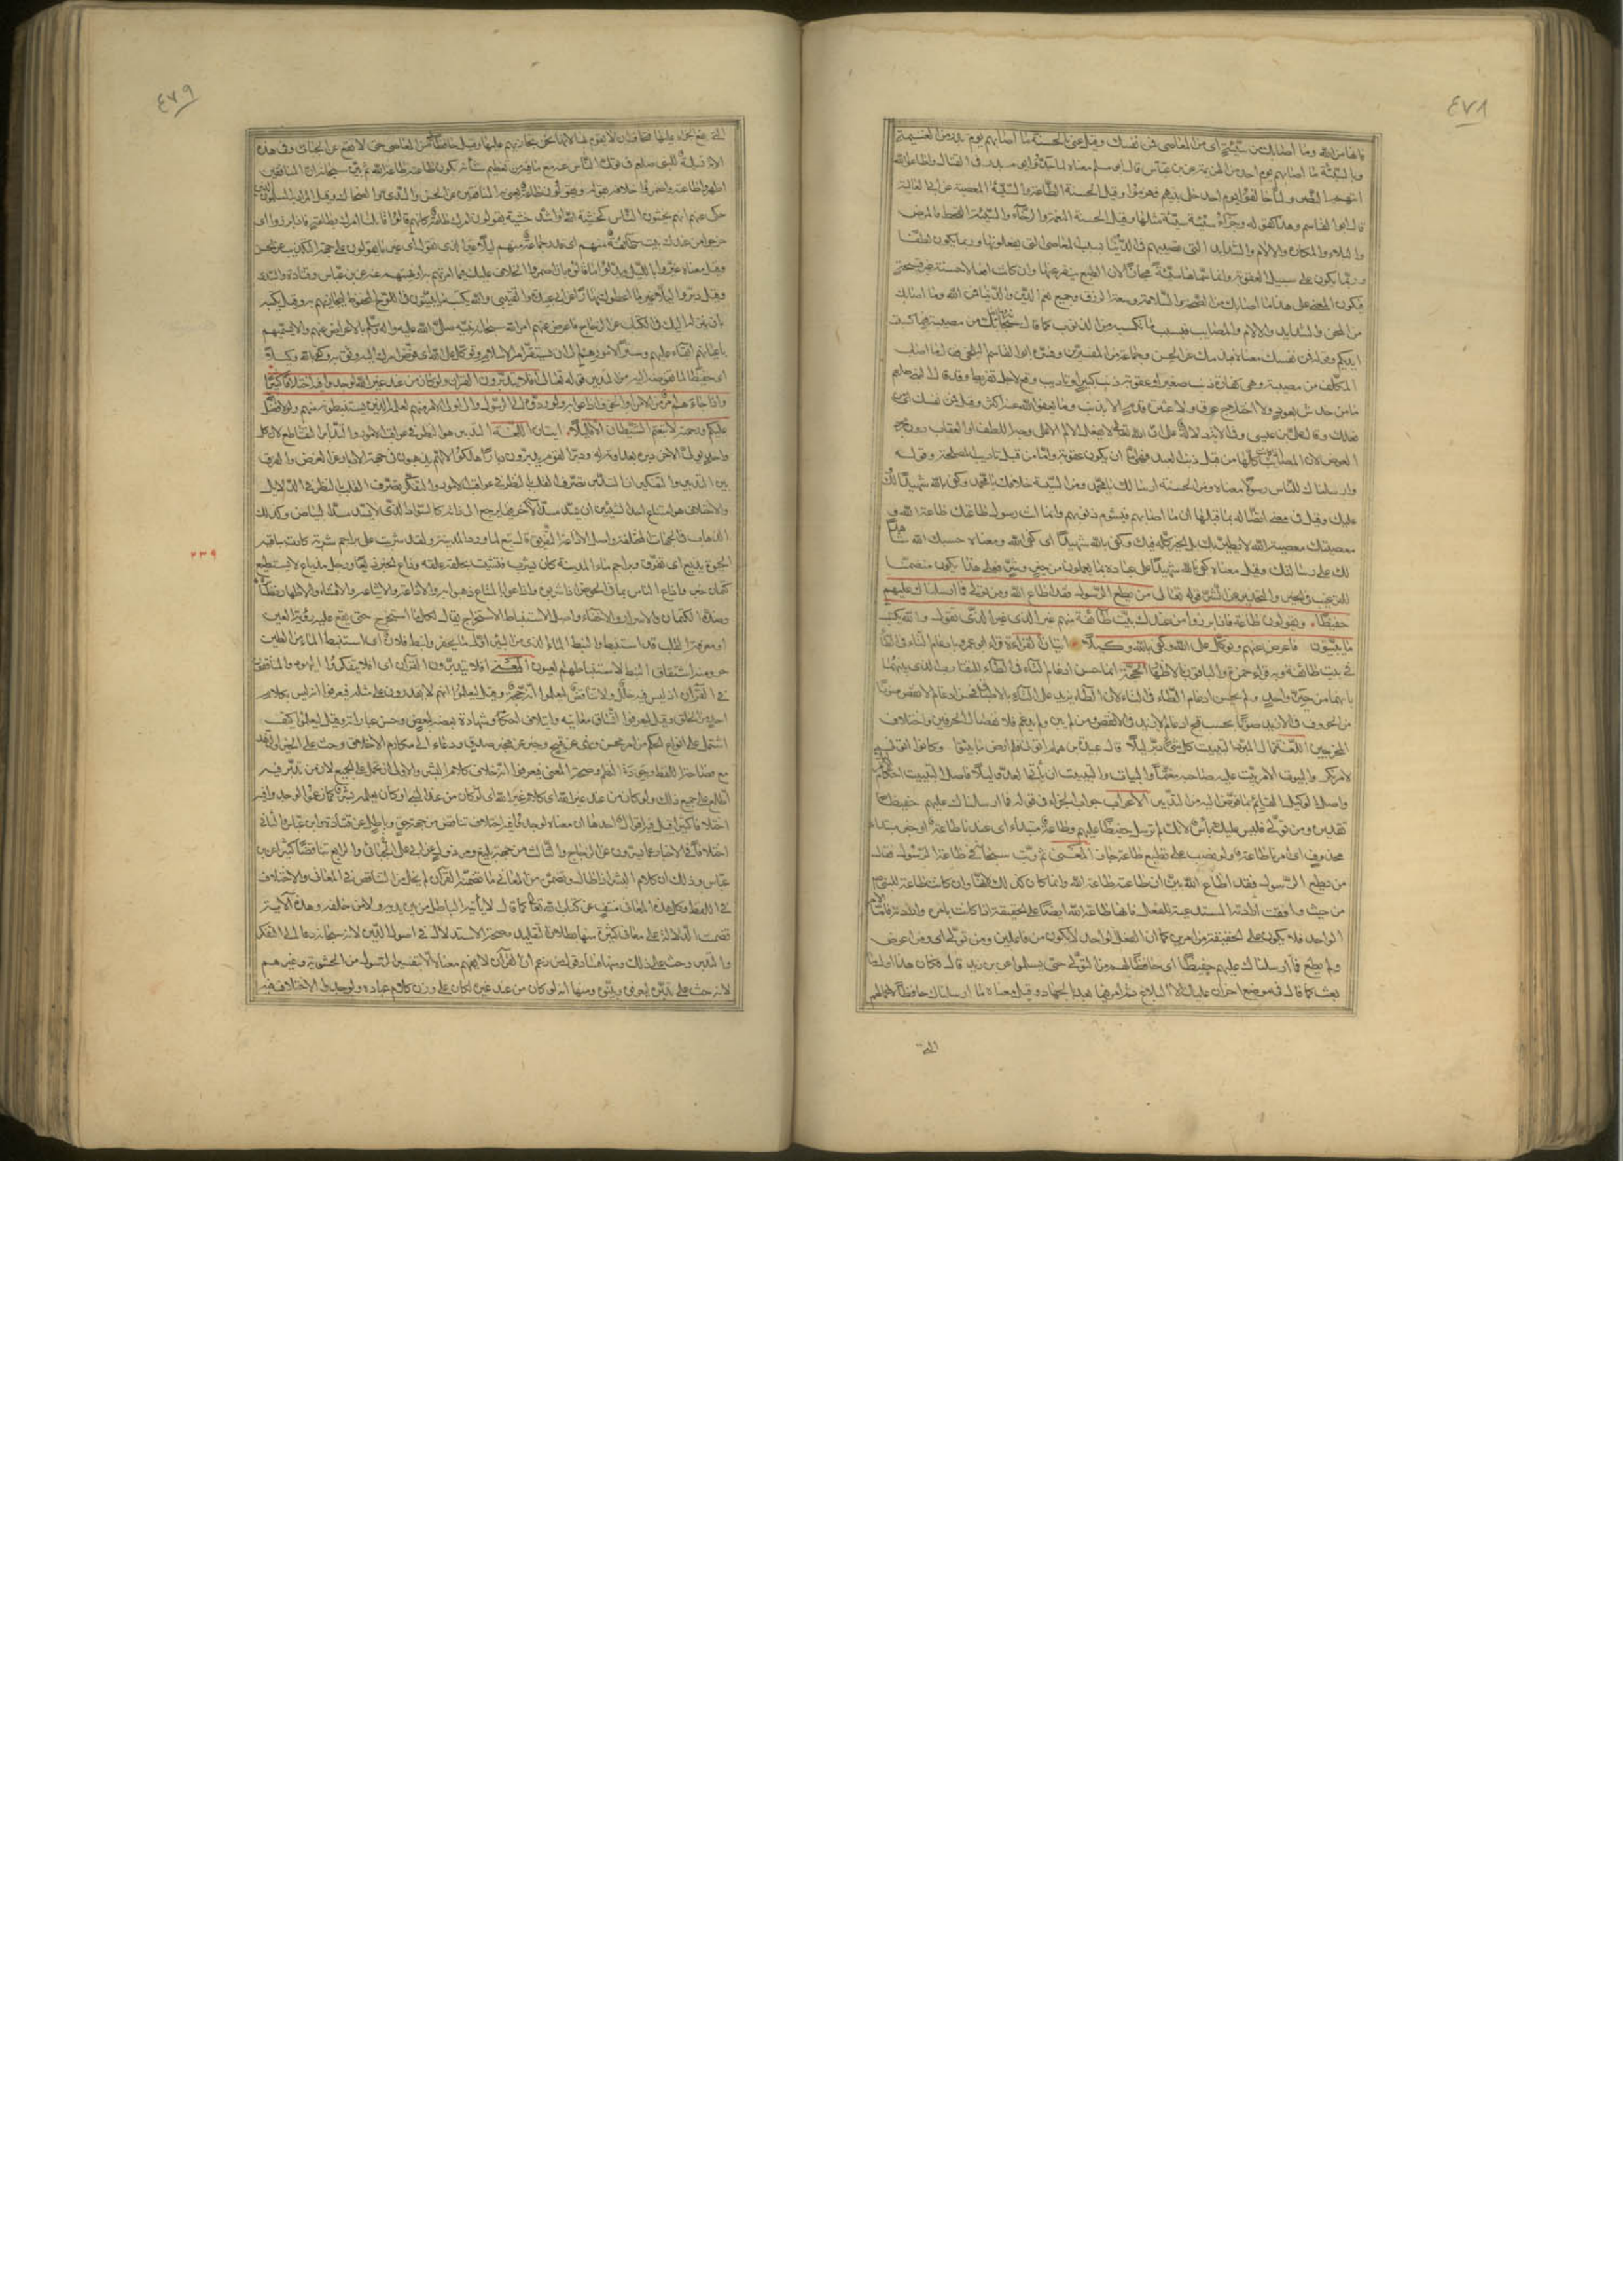 ٤٧٨
فانها من الله وما اصابك من سيئة اى من المعاصى فمن نفسك وقيل عنى بالحسنة ما اصابهم يوم بدر من الغنيمة
وبالسيئة ما اصابهم يوم احد من الهزيمة عن ابن عباس قال ابو مسلم معناه لما جدوا فى القتال واطاعوا الله
ولما خالفوا يوم احد خلى بينهم فهزموا وقيل الحسنة الطاعة والسيئة المعصية عن ابى العالية
قال ابو القاسم وهذا كقوله وجزاء سيئة سيئة مثلها وقيل الحسنة النعمة والرخاء والسيئة القحط والمرض
والبلاء والمكاره والالام والشدايد التى تصيبهم فى الدنيا بسبب المعاصى التى يفعلونها وربما يكون لطفا
وربما يكون على سبيل العقوبة وانما سماها سيئة مجازا لان الطبع ينفر عنها وان كانت افعالا حسنة غير قبيحة
فيكون المعنى على هذا ما اصابك من الصحة والسلامة وسعة الرزق وجميع نعم الدين والدنيا فمن الله وما اصابك
من المحن والشدايد والالام والمصايب فبسبب ما تكسبه من الذنوب كما قال من مصيبة فبما كسبت
ايديكم وقوله فمن نفسك معناه فبذنبك عن الحسن وجماعة من المفسرين وفسره ابو القاسم البلخى فقال ما اصاب
المكلف من مصيبة فهى كفارة ذنب صغير او عقوبة ذنب كبير او تاديب وقع لاجل تفريط وقد قال النبى
ما من خدش بعود ولا اختلاج عرق ولا عثرة قدم الا بذنب وما يعفو الله عنه اكثر وقيل فمن نفسك اى من
فعلك وقال على بن عيسى وفى الاية دلالة على ان الله تعالى لا يفعل الالم الا على وجه اللطف او العقاب دون مجرد
العوض لان المصايب كلها من قبل ذنب العبد فهى اما ان يكون عقوبة واما من قبل تاديب المصلحة وقوله
وارسلناك للناس رسولا معناه ومن الحسنة ارسالك يا محمد ومن السيئة خلافك يا محمد وكفى بالله شهيدا لك
عليك وقيل فى معنى اتصاله بما قبله ان ما اصابهم فبشؤم ذنوبهم وانما انت رسول طاعتك طاعة الله و
معصيتك معصية الله لا يطير بك بل الخير كله فيك وكفى بالله شهيدا اى كفى الله ومعناه حسبك الله شاهدا
لك على رسالتك وقيل معناه كفى بالله شهيدا على عباده بما يعملون من خير وشر فعلى هذا يكون متضمنا
للترغيب فى الخير والتحذير عن الشر قوله تعالى من يطع الرسول فقد اطاع الله ومن تولى فما ارسلناك عليهم
حفيظا ويقولون طاعة فاذا برزوا من عندك بيت طائفة منهم غير الذى تقول والله يكتب
ما يبيتون فاعرض عنهم وتوكل على الله وكفى بالله وكيلا ايتان القراءة قرا ابو عمرو بادغام التاء فى الطاء
فى بيت طائفة وبه قراءة حمزة والباقون بالاظهار الحجة انما حسن ادغام التاء فى الطاء للتقارب الذى بينهما
بانهما من حيز واحد ولم يحسن ادغام الطاء فى التاء لان الطاء يزيد على التاء بالاطباق فحسن ادغام الانقص صوتا
من الحروف فى الازيد صوتا بحسب قبح ادغام الازيد فى الانقص ومن لم يدغم فلانفصال الحرفين واختلاف
المخرجين اللغة قال المبرد التبييت كل شئ دبر ليلا قال عبيدة بن همام اتونى فلم ارض ما بيتوا وكانوا اتونى
لامر نكر والبيوت الامر يبيت عليه صاحبه مهتما والبيات والتبييت ان ياتى العدو ليلا فاصل التبييت احكام
واصل الوكيل القائم بما فوض اليه من التدبير الاعراب جواب الجزاء فى قوله فما ارسلناك عليهم حفيظا
تقديره ومن تولى فليس عليك باس لانك لم ترسل حفيظا عليهم وطاعة مبتداء اى عندنا طاعة او خبر مبتداء
محذوف اى امرنا طاعة ولو نصب على نطيع طاعة جاز المعنى ثم رغب سبحانه فى طاعة الرسول فقال
من يطع الرسول فقد اطاع الله بين ان طاعته طاعة الله وانما كان كذلك لانها وان كانت طاعة للنبى
من حيث وافقت ارادته المستدعية للفعل فانها طاعة الله ايضا على الحقيقة اذا كانت بامره وارادته فاما الامر
الواحد فلا يكون على الحقيقة من امرين كما ان الفعل الواحد لا يكون من فاعلين ومن تولى اى ومن اعرض
ولم يطع فما ارسلناك عليهم حفيظا اى حافظا لهم من التولى حتى يسلموا عن ابن زيد قال فكان هذا اول ما
بعث كما قال فى موضع اخر ان عليك الا البلاغ ثم امر فيما بعد بالجهاد وقيل معناه ما ارسلناك حافظا لاعمالهم
التى
٤٧٩
التى يقع الجزاء عليها فتخاف ان لا تقوم بها لانا نحن نجازيهم عليها وقيل حافظا لهم من المعاصى حتى لا تقع عن الجنائى وفى هذه
الاية تسلية للنبى صلعم فى تولى الناس عنه مع ما فيه من تعظيم شانه بكون طاعته طاعة الله ثم بين سبحانه ان المنافقين
اظهروا طاعته واضمروا خلافه بقوله ويقولون طاعة يعنى به المنافقين عن الحسن والسدى والضحاك وقيل المراد به المسلمون الذين
حكى عنهم انهم يخشون الناس كخشية الله او اشد خشية يقولون امرك طاعة كانهم قالوا قابلنا امرك بطاعة فاذا برزوا اى
خرجوا من عندك بيت طائفة منهم اى قدر جماعة منهم ليلا غير الذى تقول اى غير ما يقولون على جهة التكذيب عن الحسن
وقيل معناه غيروا بالليل وبدلوا ما قالوه بان اضمروا الخلاف عليك فيما امرتهم به او نهيتهم عنه عن ابن عباس وقتادة والسدى
وقيل دبروا ليلا غير ما اعطوك نهارا عن ابى عبيدة والقتيبى والله يكتب ما يبيتون فى اللوح المحفوظ ليجازيهم به وقيل يكتبه
بان ينزله اليك فى الكتاب عن الزجاج فاعرض عنهم امر الله سبحانه نبيه صلى الله عليه واله وسلم بالاعراض عنهم والا يسميهم
باعيانهم ابقاء عليهم وسترا لامورهم الى ان يستقر امر الاسلام وتوكل على الله اى فوض امرك اليه وثق به وكفى بالله وكيلا
اى حفيظا لما تفوضه اليه من التدبير قوله تعالى افلا يتدبرون القران ولو كان من عند غير الله لوجدوا فيه اختلافا كثيرا
واذا جاءهم امر من الامن او الخوف اذاعوا به ولو ردوه الى الرسول والى اولى الامر منهم لعلمه الذين يستنبطونه منهم ولولا فضل الله
عليكم ورحمته لاتبعتم الشيطان الا قليلا ايتان اللغة التدبير هو النظر فى عواقب الامور والتدابر التقاطع لان كل
واحد يولى الاخر دبره بعداوته له ودبر القوم يدبرون دبارا هلكوا لانهم يذهبون فى جهة الادبار عن الغرض والفرق
بين التدبر والتفكر ان التدبر تصرف القلب بالنظر فى عواقب الامور والتفكر تصرف القلب بالنظر فى الدلايل
والاختلاف هو امتناع احد الشيئين ان يسد مسد الاخر فيما يرجع الى ذاته كالسواد الذى لا يسد مسد البياض وكذلك
الذهاب فى الجهات المختلفة واصل الاذاعة التفريق قال تبع لما ورد المدينة ولقد شربت على براجم شربة كادت بباقية
الحيوة تذيع اى تفرق وبراجم ماء بالمدينة كان يشرب منه
كتمان خبر واذاع الناس بما فى الحوض اذا شربوه واذاعوا بالمتاع ذهبوا به والاذاعة والاشاعة والافشاء والاظهار نظاير
وضده الكتمان والاسرار والاخفاء واصل الاستنباط الاستخراج يقال لكل ما استخرج حتى يقع عليه رؤية العين
او معرفة القلب قد استنبط والنبط الماء الذى من البئر اول ما يحفر وانبط فلان اى استنبط الماء من الطين
حر ومنه اشتقاق النبط لاستنباطهم العيون المعنى افلا يتدبرون القران اى افلا يتفكر اليهود والمنافقون
فى القران اذ ليس فيه خلل ولا تناقض ليعلموا انه حجة وقيل ليعلموا انهم لا يقدرون على مثله فيعرفوا انه ليس بكلام
احد من الخلق وقيل ليعرفوا اتساق معانيه وايتلاف احكامه وشهادة بعضه لبعض وحسن عباراته وقيل ليعلموا كيف
اشتمل على انواع الحكم من امر بحسن ونهى عن قبيح وخبر عن مخبر صدق ودعاء الى مكارم الاخلاق وحث على الخير والزهد
مع فصاحة اللفظ وجودة النظم وصحة المعنى فيعرفوا انه خلاف كلام البشر والاولى ان يحمل على الجميع لان من تدبر فيه
اطلع على جميع ذلك ولو كان من عند غير الله اى كلام غير الله اى لو كان من عند النبى او كان يعلمه بشر كما زعموا لوجدوا فيه
اختلافا كثيرا قيل فيه اقوال احدها ان معناه لوجدوا فيه اختلاف تناقض من جهة حق وباطل عن قتادة وابن عباس والثانى
اختلافا فى الاخبار عما يسرون عن الزجاج والثالث من جهة بليغ ومرذول عن ابى على الجبائى والرابع تناقضا كثيرا عن ابن
عباس وذلك ان كلام البشر اذا طال وتضمن من المعانى ما تضمنه القران لم يخل من التناقض فى المعانى والاختلاف
فى اللفظ وكل هذه المعانى منفى عن كتاب الله تعالى كما قال لا ياتيه الباطل من بين يديه ولا من خلفه وهذه الاية
تضمنت الدلالة على معان كثيرة منها بطلان التقليد وصحة الاستدلال فى اصول الدين لانه سبحانه دعا الى التفكر
والتدبر وحث على ذلك ومنها فساد قول من زعم ان القران لا يفهم معناه الا بتفسير الرسول من الحشوية وغيرهم
لانه حث على تدبره ليعرفوه ويتبينوه ومنها انه لو كان من عند غيره لكان على وزن كلام عباده ولوجدوا الاختلاف فيه
٢٣٩